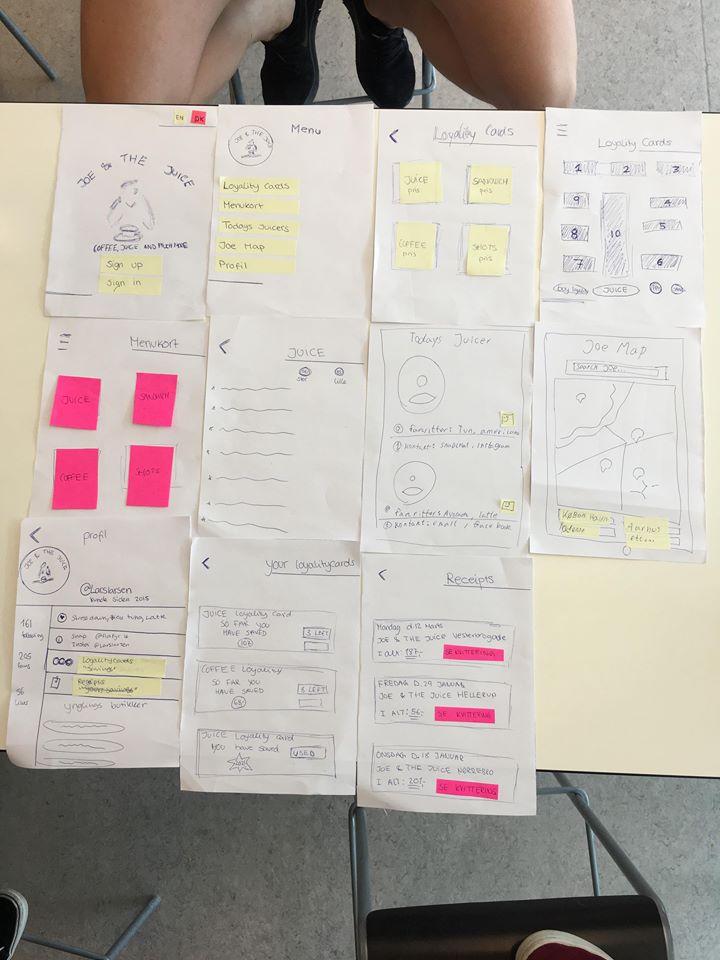 EN DK
JOE & THE JUICE
COFFEE, JUICE AND MUCH MORE
Sign up
Sign in
JOE & THE JUICE
Menu
Loyality Cards
Menukort
Todays Juicers
Joe Map
Profil
Loyality Cards
JUICE
pris
SANDWICH
pris
COFFEE
pris
SHOTS
pris
Loyality Cards
1 2 3
9 4
8 10 5
7 6
JUICE
Menukort
JUICE
SANDWICH
COFFEE
SHOTS
JUICE
Stor Lille
Todays Juicer
favoritter: Tun, americano
Kontakt: snapchat, instagram
favoritter: Avocado, latte
Kontakt: email / facebook
Joe Map
Search Joe...
København
Odense
Aarhus
etc...
profil
JOE & THE JUICE
@Larslarsen
Kunde siden 2015
161
following
205
fans
56
likes
Loyalitycards
"savings"
Receipts
ynglings butikker
your loyalitycards
JUICE Loyality Card
SO FAR YOU
HAVE SAVED
3 LEFT
COFFEE Loyality
SO FAR YOU
HAVE SAVED
3 LEFT
68,-
JUICE Loyality card
YOU have saved
USED
Receipts
Mandag d.12 Marts
JOE & THE JUICE Vesterbrogade
I ALT: 187,-
SE KVITTERING
FREDAG D. 29 JANUAR
JOE & THE JUICE HELLERUP
I ALT: 56,-
SE KVITTERING
ONSDAG D. 18 JANUAR
JOE & THE JUICE NØRREBRO
I ALT: 201,-
SE KVITTERING